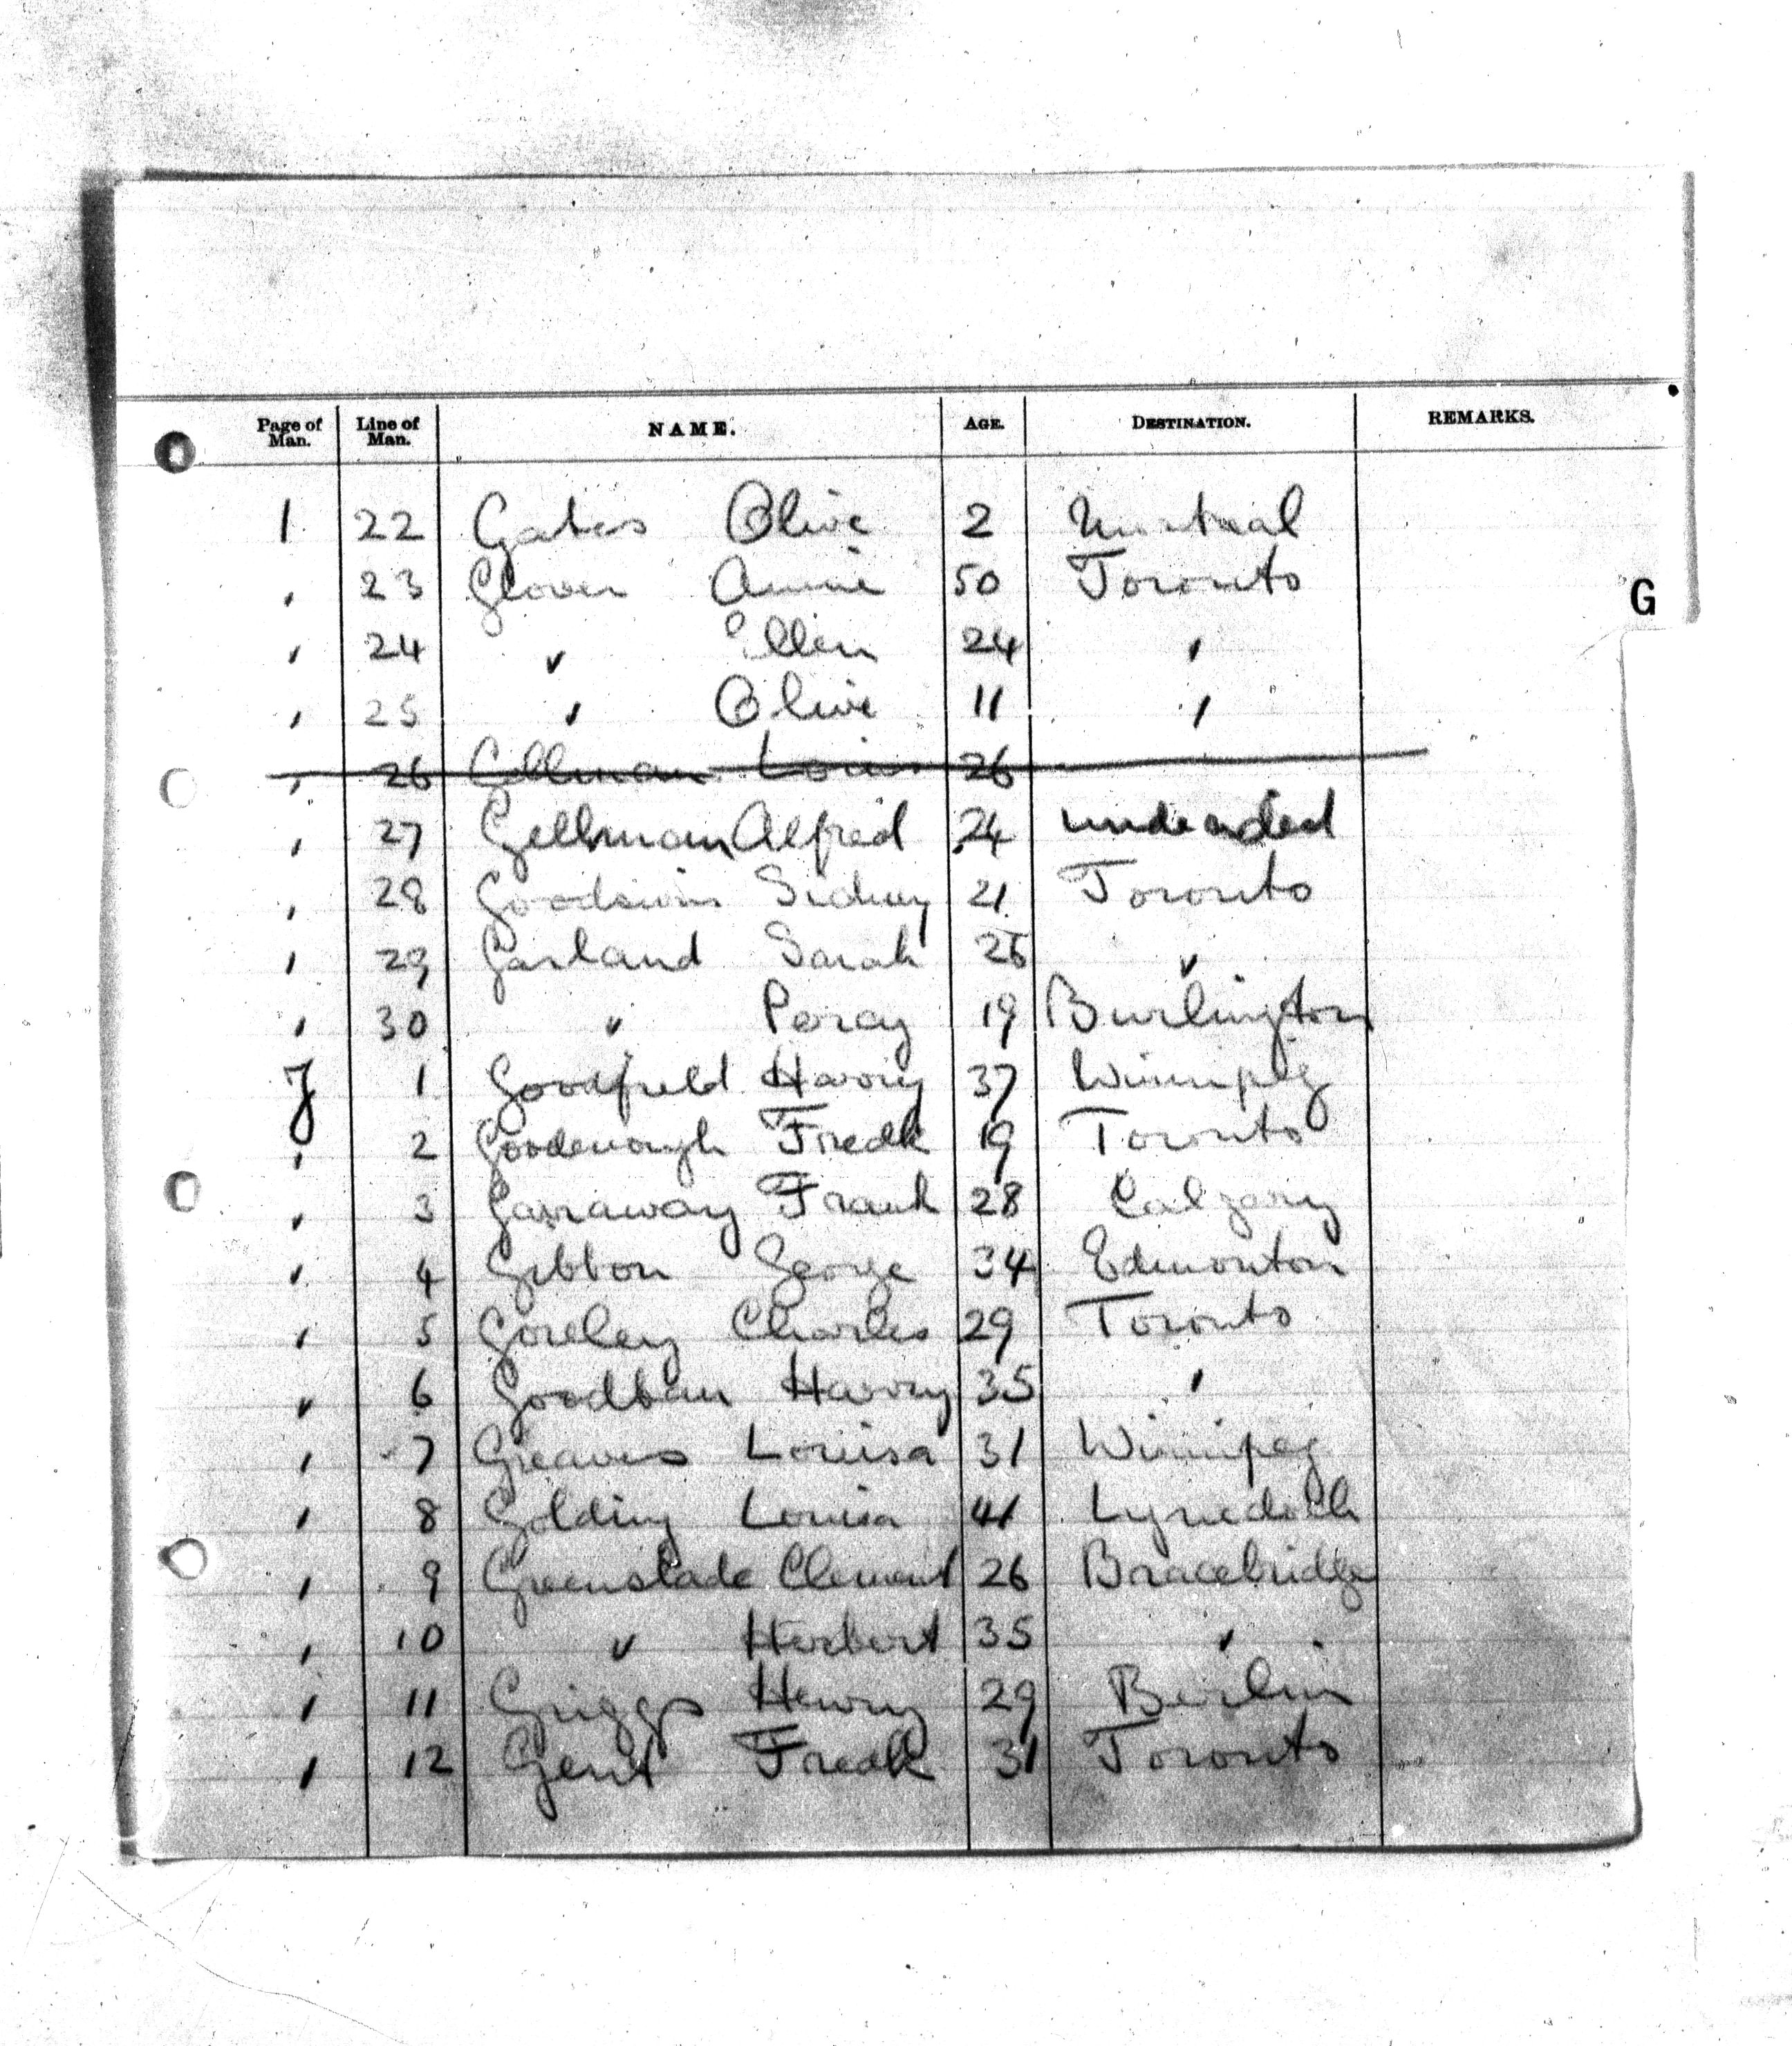 Page of Man. Line of Man. NAME. AGE. DESTINATION. REMARKS.
1 22 Gates Olive 2 Montreal
" 23 Glover Annie 50 Toronto
G
" 24 " Ellen 24 "
" 25 " Olive 11 "
" 26 Gellman Louis 26
" 27 Gellman Alfred 24 undecided
" 28 Goodwin Sidney 21 Toronto
" 29 Garland Sarah 25 "
" 30 " Percy 19 Burlington
J 1 Goodfield Harry 37 Winnipeg
" 2 Goodenough Fredk 19 Toronto
" 3 Garraway Frank 28 Calgary
" 4 Gibbon George 34 Edmonton
" 5 Goreley Charles 29 Toronto
" 6 Goodban Harry 35 "
" 7 Greaves Louisa 31 Winnipeg
" 8 Golding Louisa 41 Lynedoch
" 9 Greenslade Clement 26 Bracebridge
" 10 " Herbert 35 "
" 11 Griggs Henry 29 Berlin
" 12 Gent Fredk 31 Toronto